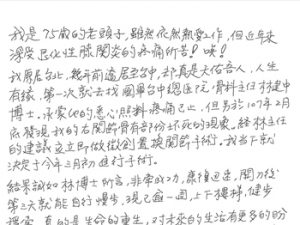 我是75歲的老頭子,雖然依然熱愛工作,但近年來
深受退化性膝關節的疼痛所苦!唉!
我原居台北,幾年前遷居至台中,却真是天佑吾人,人生
有緣,第一次就去找國軍台中總醫院,骨科主任林建中
博士,承蒙他的悉心照料疼痛已止,但去於107年2月
依發現,我的右關節骨有部份坏死的現象。經林主任
的建議並立即做徹劉置換關節手術。我當下就
決定于今年三月初進行手術。
結果誠如林博士所言,非常成功,康復迅速,開刀後
第三天就能自行慢步,現已逾一週,上下樓梯,健步
真的是生命的重生,对未來的生活有更多的盼